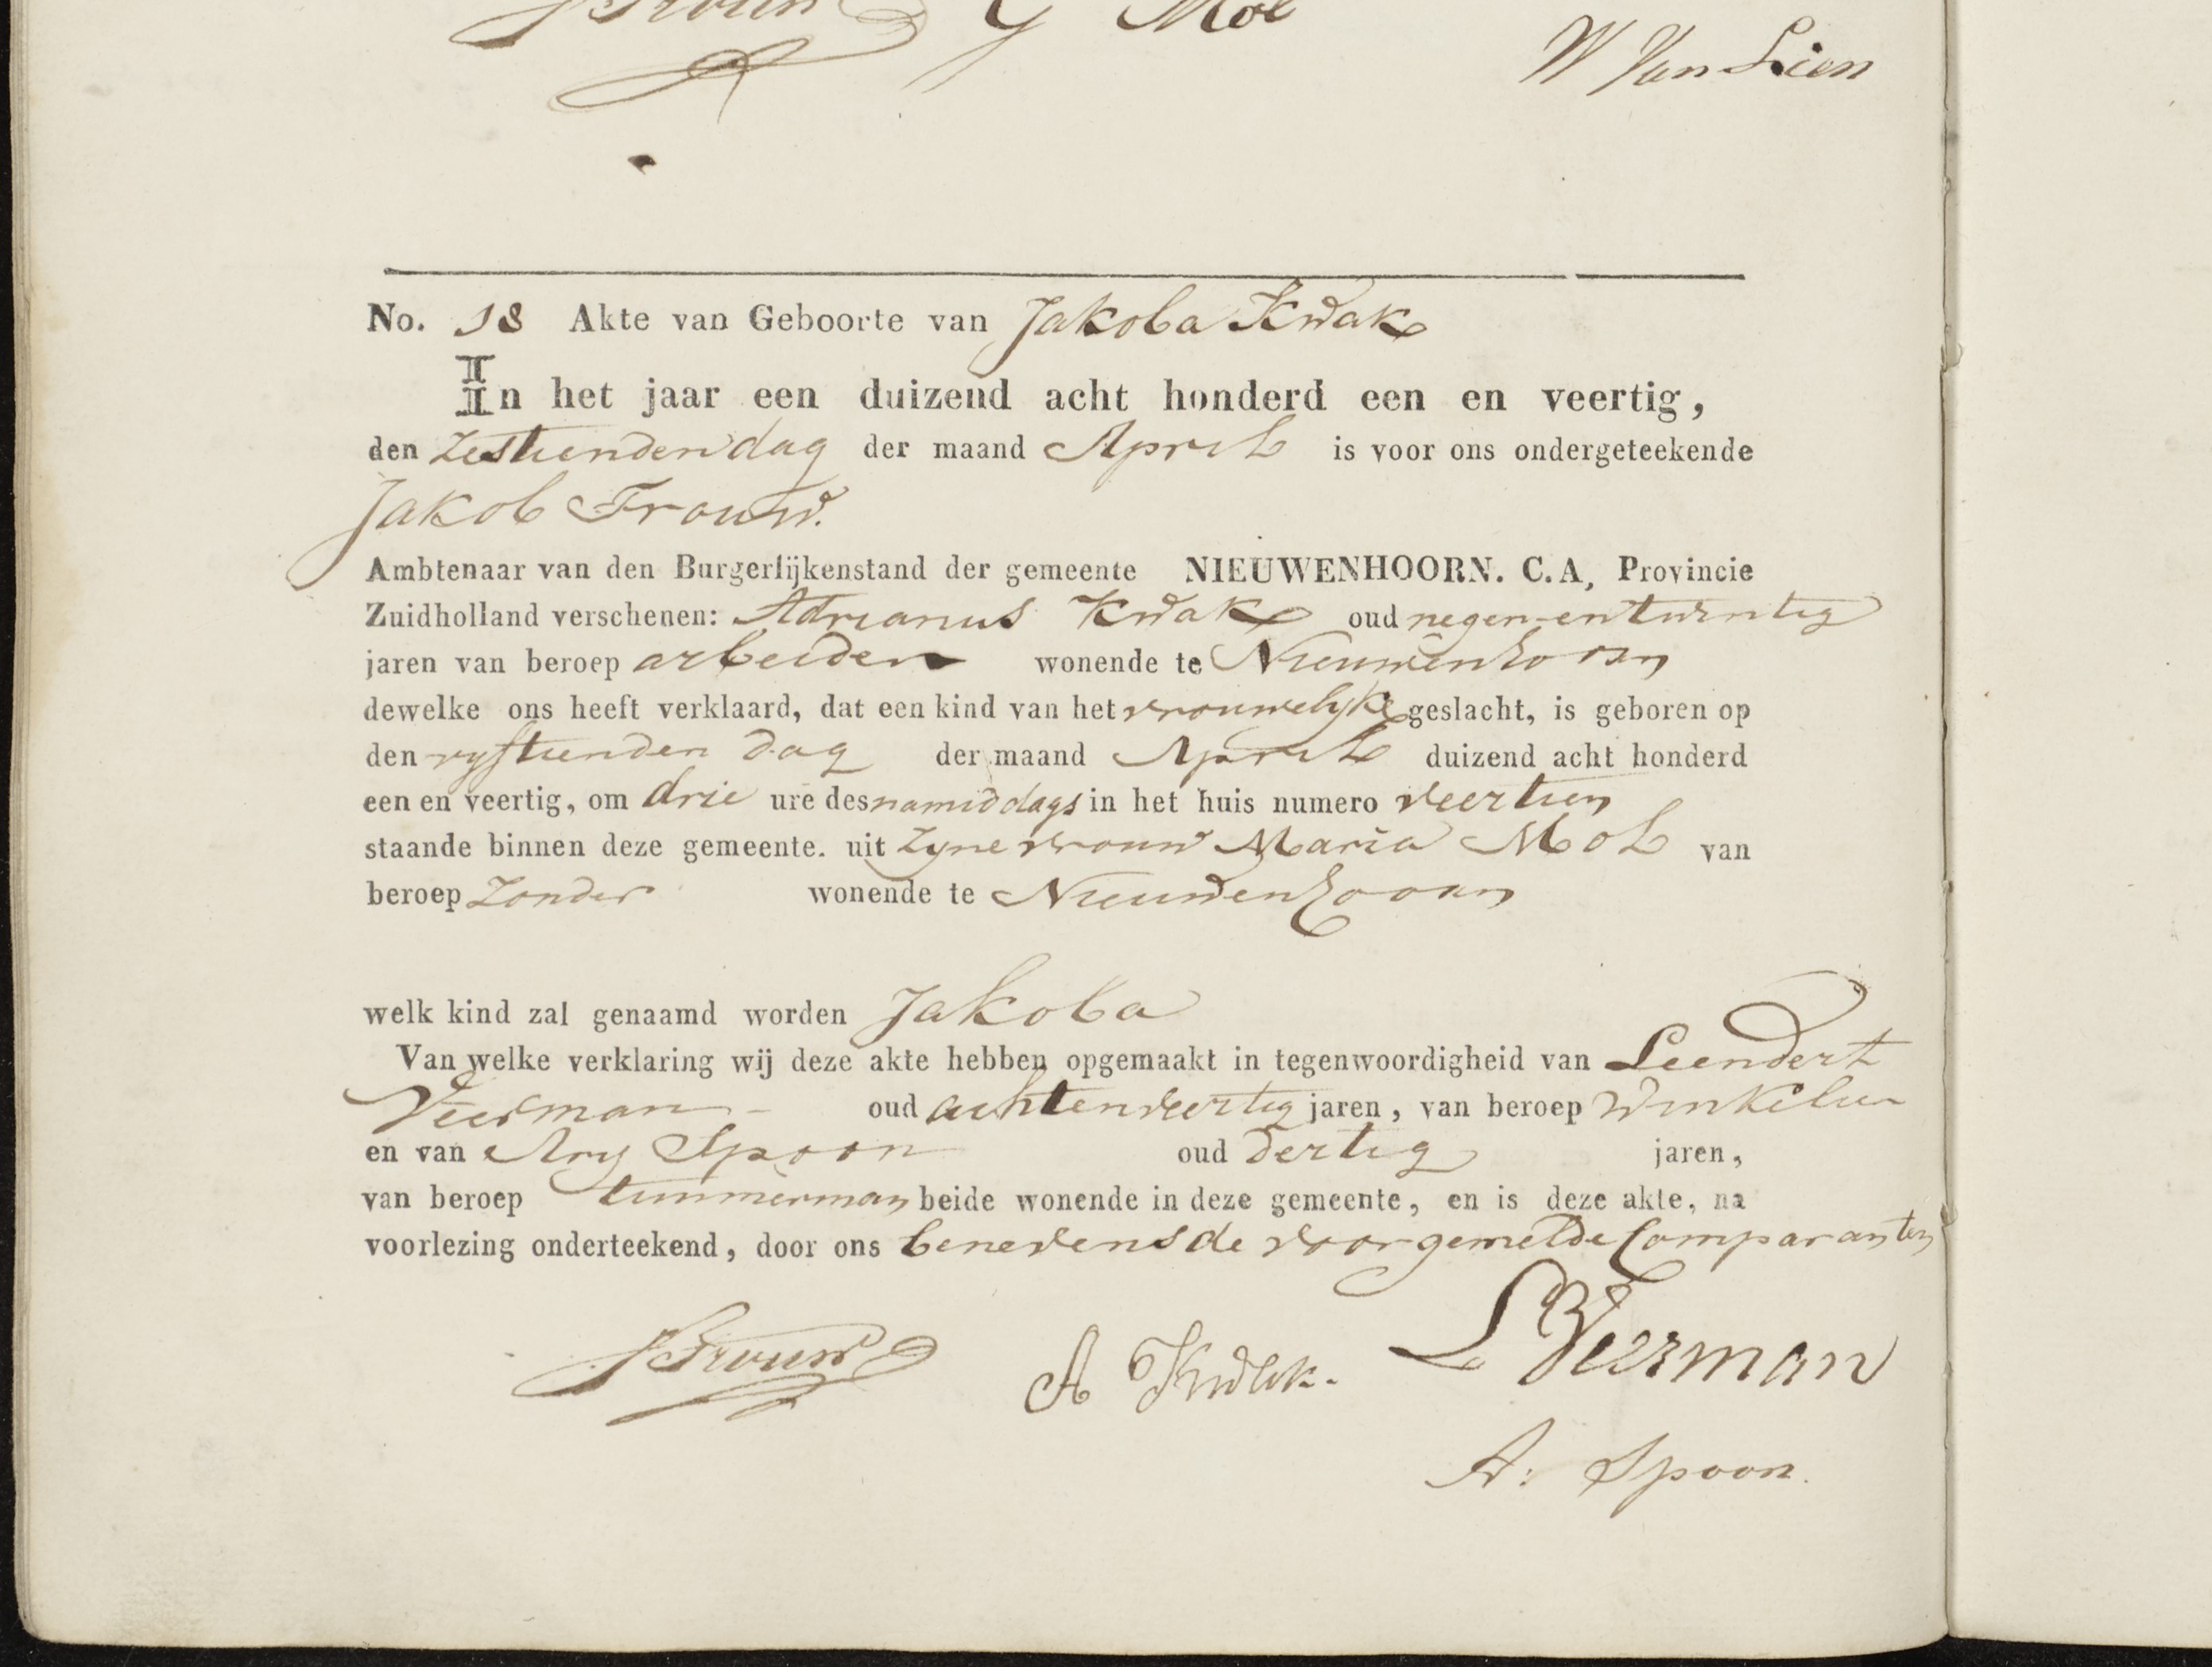 JTrouw G Mol
W Van Lien
No. 18 Akte van Geboorte van Jakoba Kwak
In het jaar een duizend acht honderd een en veertig,
den Zestienden dag der maand April is voor ons ondergeteekende
Jakob Trouw.
Ambtenaar van den Burgerlijkenstand der gemeente NIEUWENHOORN. C.A, Provincie
Zuidholland verschenen: Adrianus Kwak oud negen-entwintig
jaren van beroep arbeider wonende te Nieuwenhoorn
dewelke ons heeft verklaard, dat een kind van het vrouwelyke geslacht, is geboren op
den vyftienden dag der maand April duizend acht honderd
een en veertig, om drie ure des namiddags in het huis numero veertien
staande binnen deze gemeente. uit Zyne vrouw Maria Mol van
beroep Zonder wonende te Nieuwenhoorn
welk kind zal genaamd worden Jakoba
Van welke verklaring wij deze akte hebben opgemaakt in tegenwoordigheid van Leendert
Veerman oud achtenveertig jaren, van beroep Winkelier
en van Ary Spoon oud dertig jaren,
van beroep timmerman beide wonende in deze gemeente, en is deze akte, na
voorlezing onderteekend, door ons benevens de voorgemelde Comparanten
JTrouw A Kwak. L Veerman
A: Spoon.